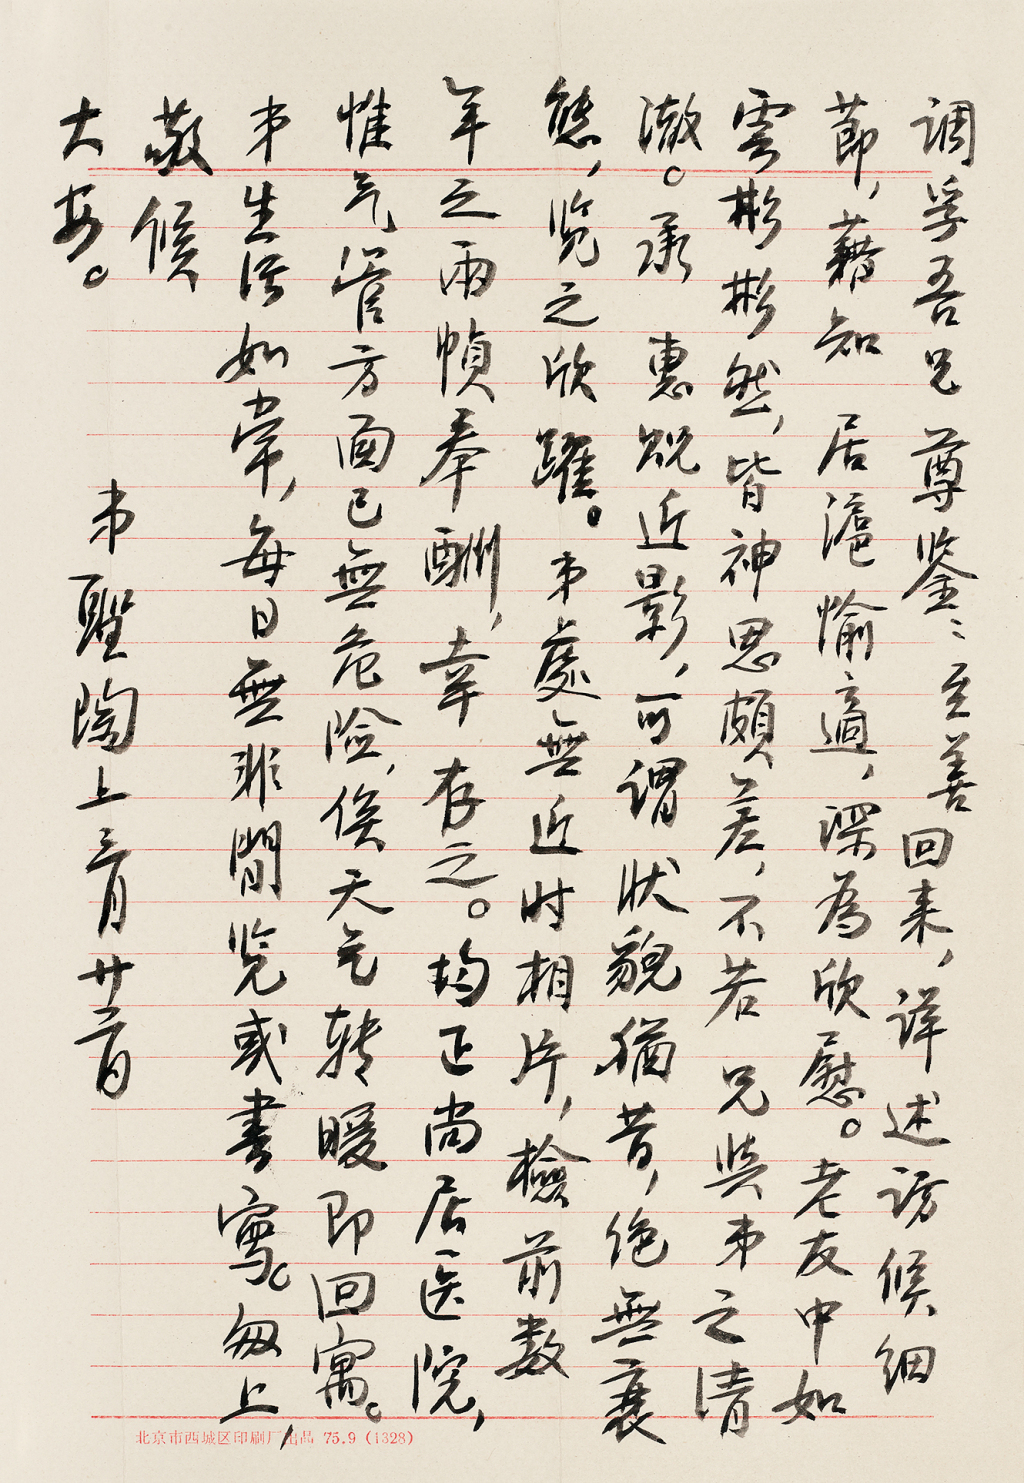 调孚吾兄尊鉴：至善回来，详述访候细
节，藉知 居滬愉適，深為欣慰。老友中如
雲彬彬然，皆神思頗差，不若 兄與弟之清
澈。承 惠貺近影，可谓狀貌猶昔，绝無衰
態，览之欣躍。弟處無近时相片，檢前数
年之兩幀奉酬，幸存之。均正尚居医院，
惟气管方面已無危险，俟天气转暖即回寓。
弟生活如常，每日無非閒览或書寫。匆上，
敬候
大安。
弟聖陶上 三月廿二日
北京市西城区印刷厂出品 75.9 (1328)